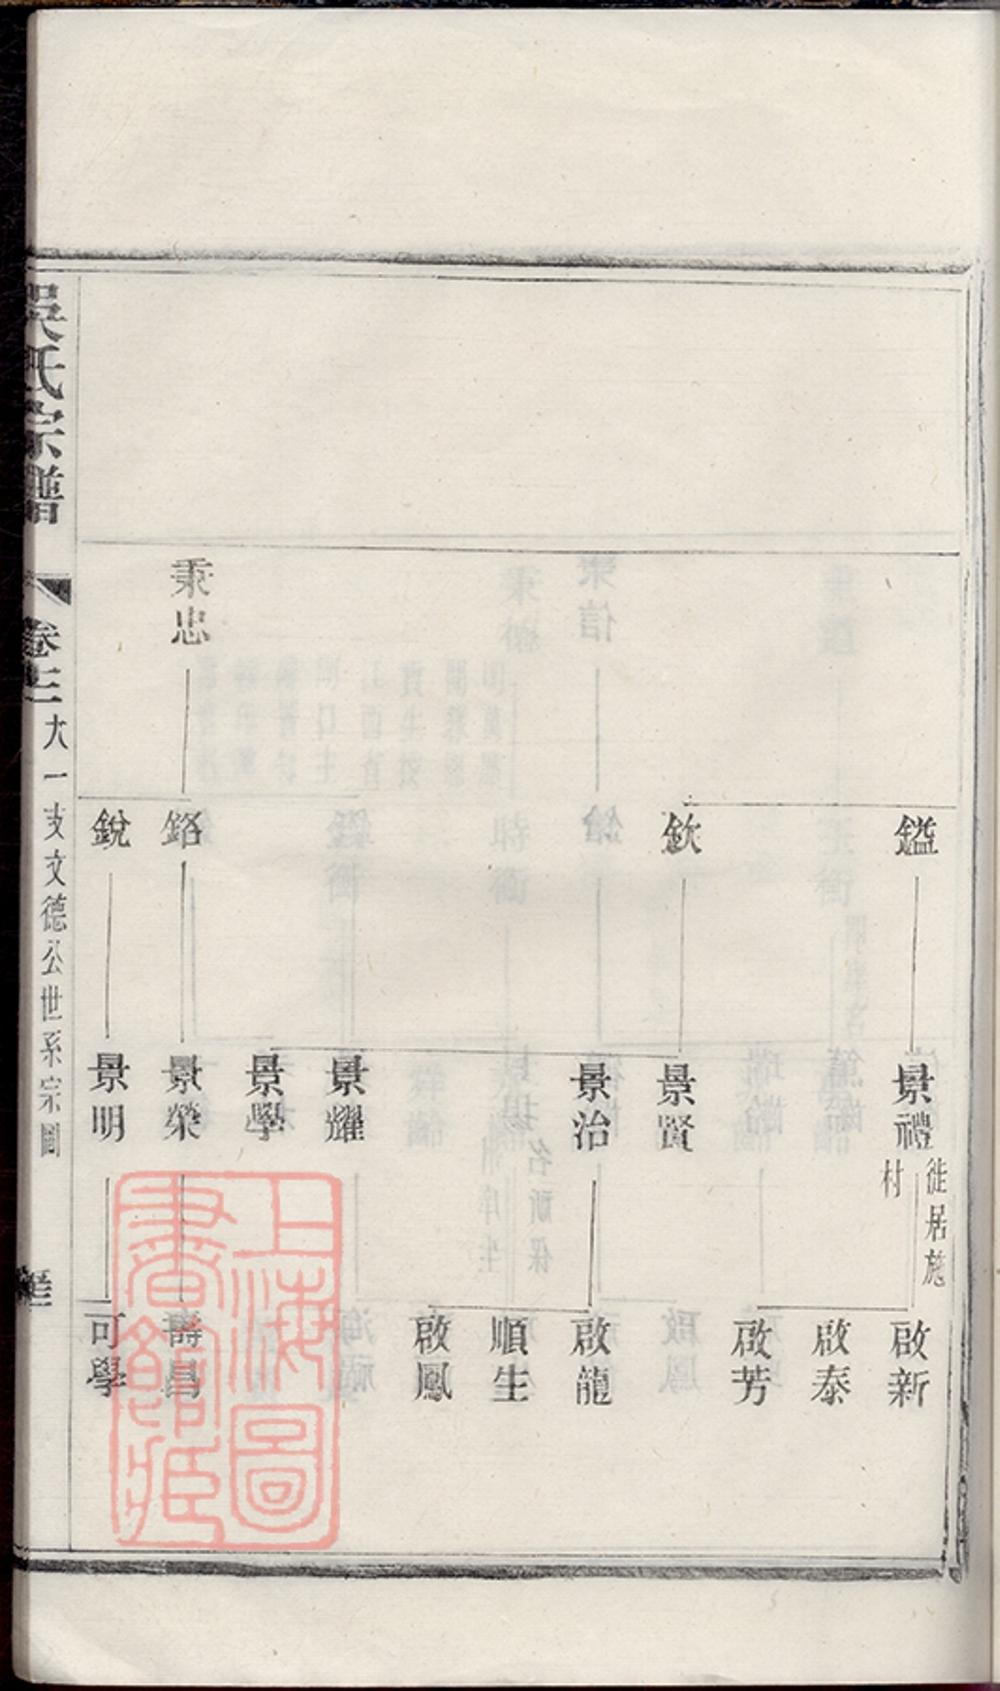 秉忠
鎰
欽
鉻
銳
景禮
徙居施
村
景賢
景治
景耀
景學
景榮
景明
啟新
啟泰
啟芳
啟龍
順生
啟鳳
壽昌
可學
吳氏宗譜
大一支文德公世系宗圖
上海圖
書館藏